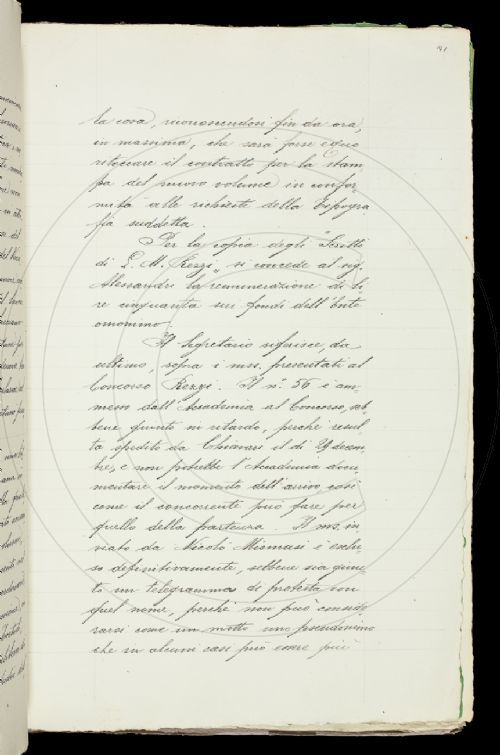 91
la cosa, riconoscendosi fin da ora,
in massima, che sarà forse equo
ritoccare il contratto per la stam
pa del nuovo volume in confor
mità alle richieste della tipogra
fia suddetta.
Per la copia degli "Scritti
di L. M. Rezzi", si concede al sig.
Alessandri la remunerazione di li
re cinquanta sui fondi dell'Ente
omonimo.
Il Segretario riferisce, da
ultimo, sopra i mss. presentati al
Concorso Rezzi. Il n.º 56 è am
messo dall'Accademia al Concorso, seb
bene giunto in ritardo, perchè risul
ta spedito da Chiavari il dì 29 decem
bre, e non potrebbe l'Accademia docu
mentare il momento dell'arrivo così
come il concorrente può fare per
quello della partenza. Il ms. in
viato da Nicolò è esclu
so definitivamente, sebbene sia giun
to un telegramma di protesta con
quel nome, perchè non può conside
rarsi come un motto uno pseudonimo
che in alcuni casi può essere più